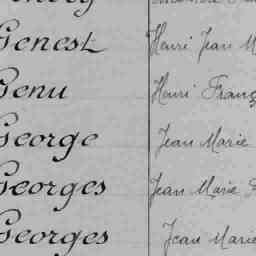 Genest Henri Jean M
Genu Henri Franç
George Jean Marie
Georges Jean Marie
Georges Jean Marie